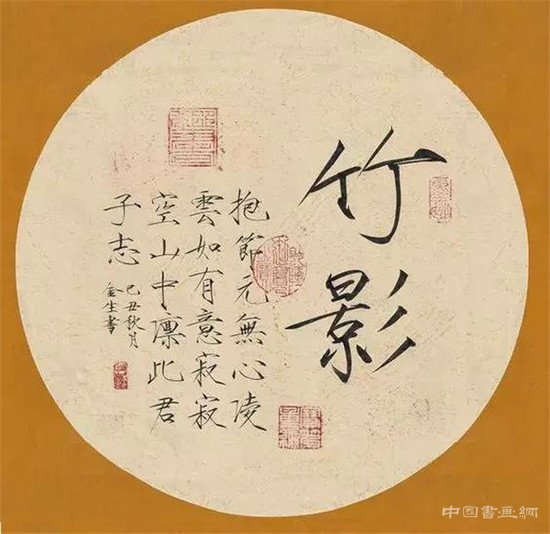 竹影
抱節元無心陵
雲如有意寂寂
空山中凛此君
子志
己丑秋月
金生書
中国書画網